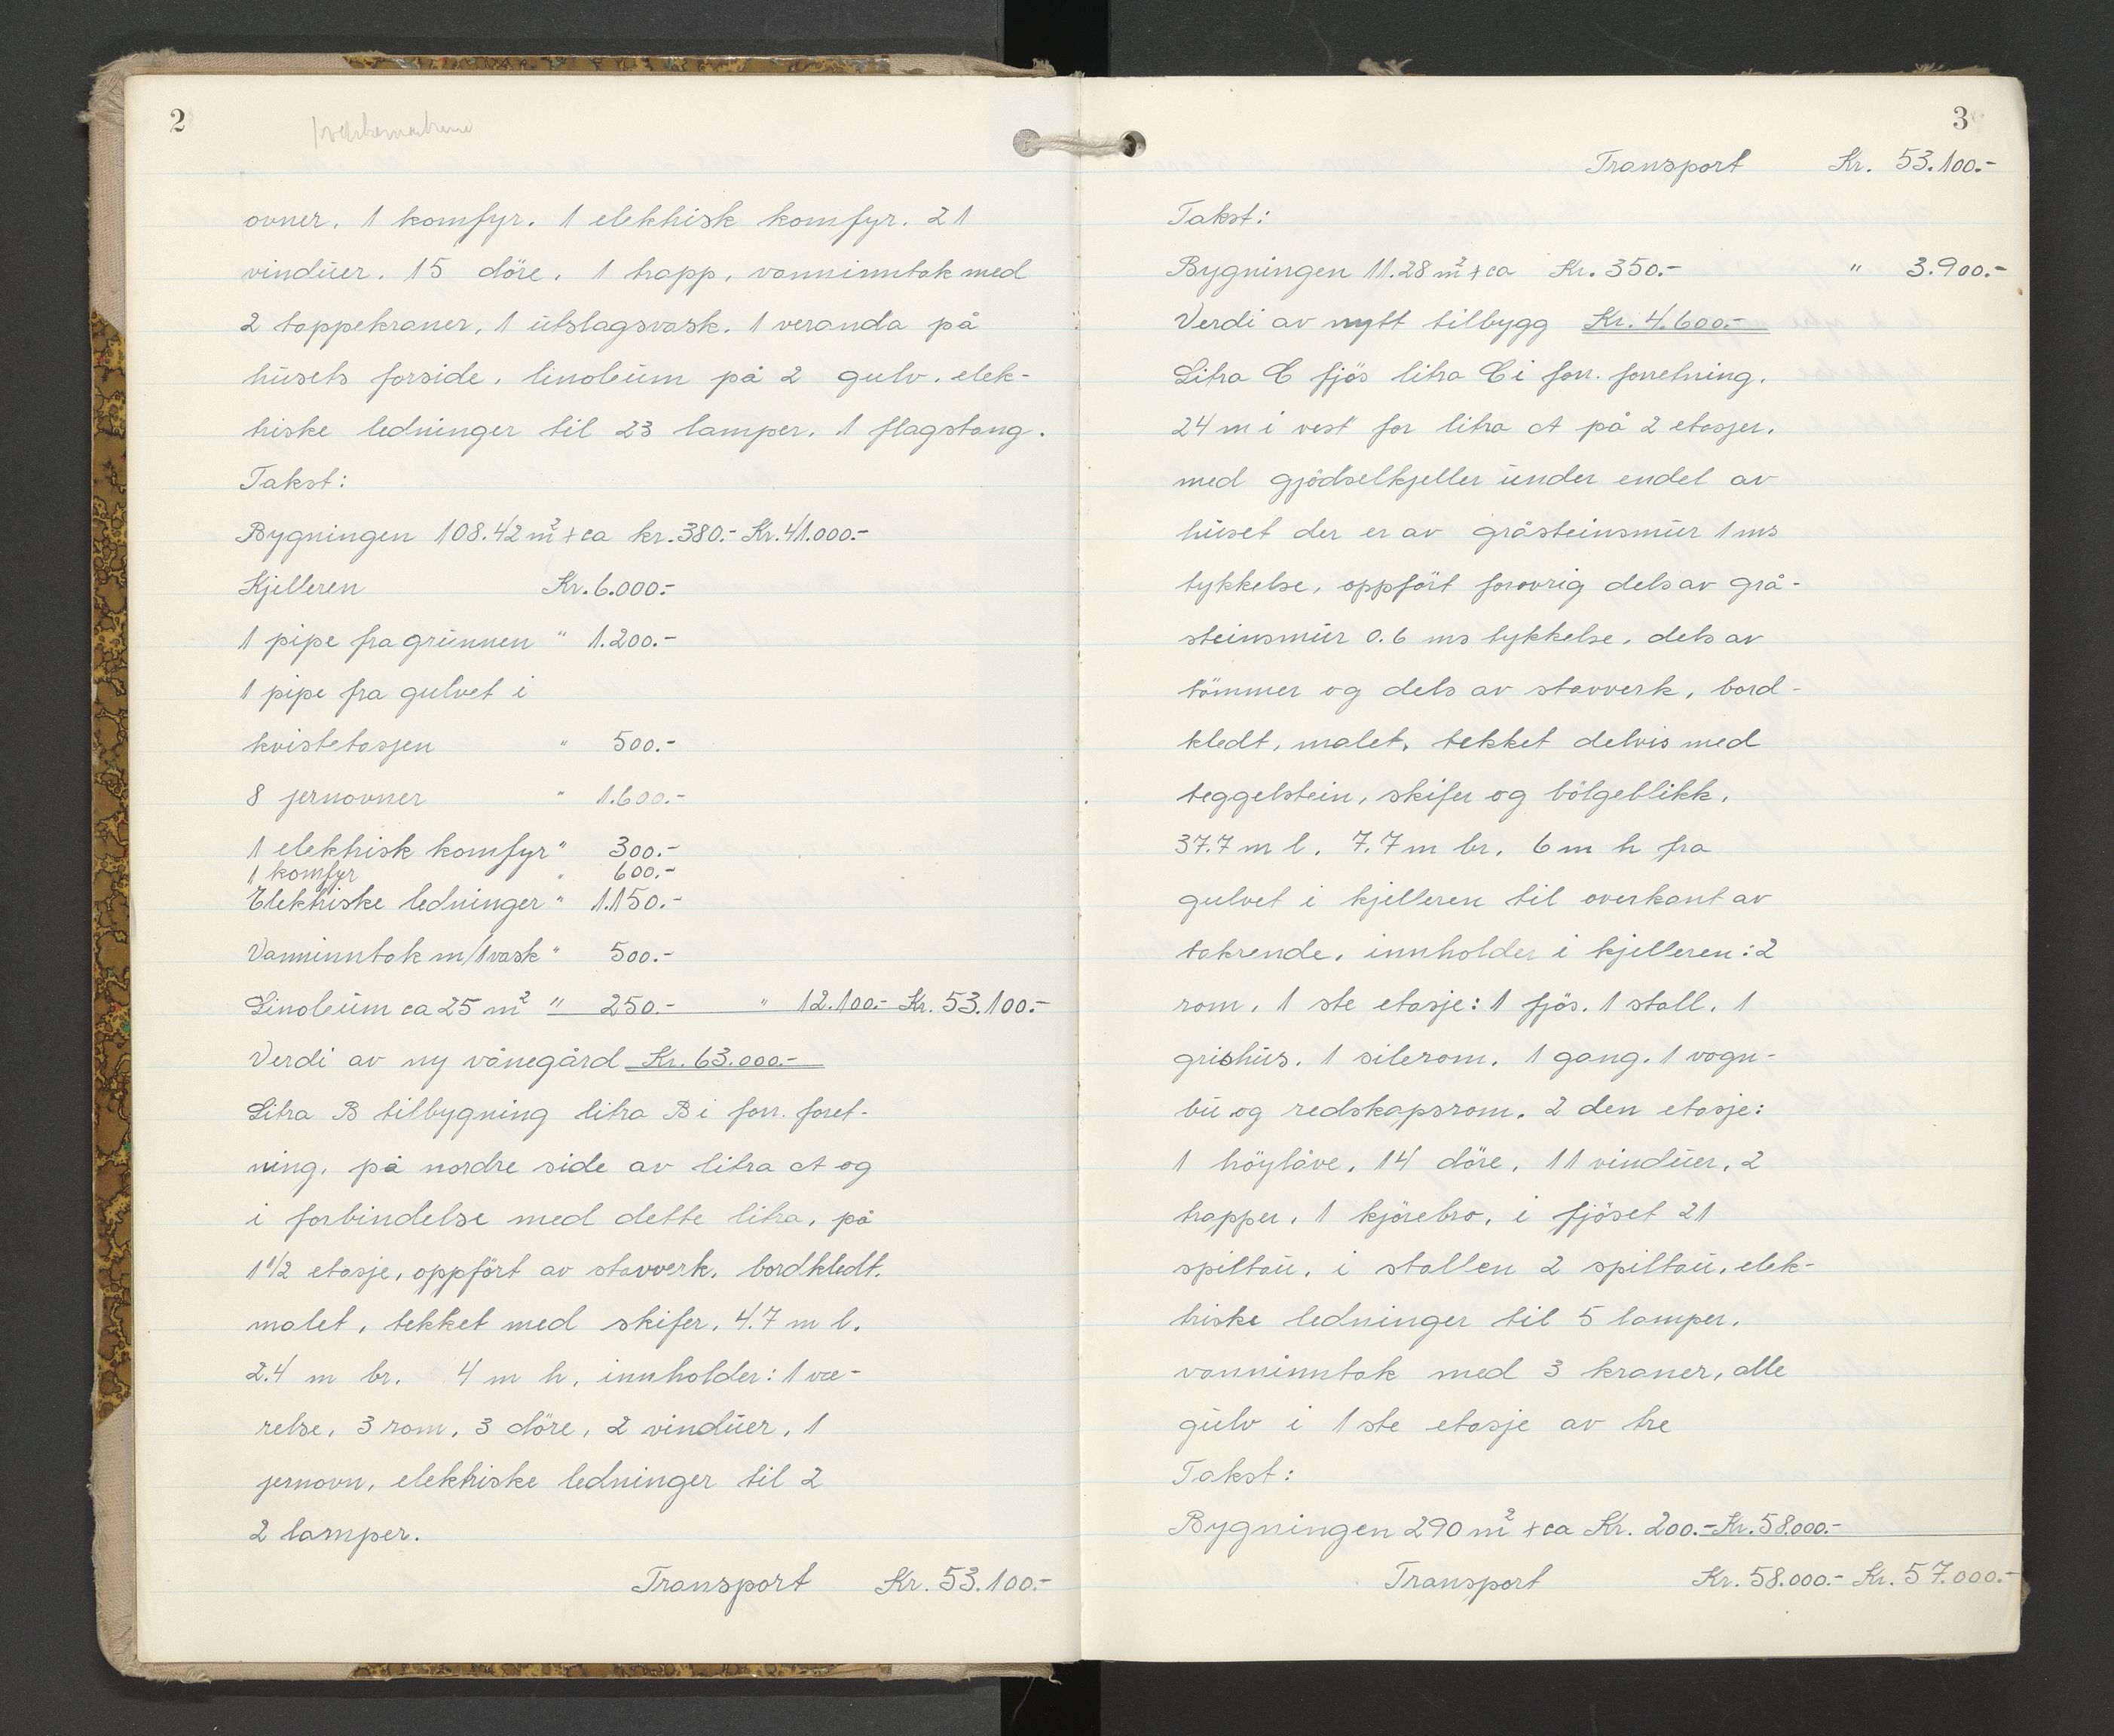 2
ovner, 1 komfyr, 1 elektrisk komfyr, 21
vindüer, 15 döre, 1 trapp, vanninntak med
2 tappekraner, 1 ütslagsvask, 1 veranda på
hüsets forside, linoleüm på 2 gulv, elek-
triske ledninger til 23 lamper, 1 flagstang.
Takst:
Bygningen 108.42 m² + ca kr. 380.- Kr. 41.000.-
Kjelleren Kr. 6.000.-
1 pipe fra grünnen " 1.200.-
1 pipe fra gulvet i
kvistetasjen " 500.-
8 jernovner " 1.600.-
1 elektrisk komfyr " 300.-
1 komfyr " 600.-
Elektriske ledninger " 1.150.-
Vanninntak m/1 vask " 500.-
Linoleüm ca 25 m² " 250.- " 12.100.- Kr. 53.100.-
Verdi av ny vånegård Kr. 63.000.-
Litra B tilbygning litra B i forr. foret-
ning, på nordre side av litra A og
i forbindelse med dette litra, på
1 1/2 etasje, oppfört av stavverk, bordkledt,
malet, tekket med skifer, 4.7 m l.
2.4 m br. 4 m h, innholder: 1 væ-
relse, 3 rom, 3 döre, 2 vindüer, 1
jernovn, elektriske ledninger til 2
2 lamper.
Transport Kr. 53.100.-
3
Transport Kr. 53.100.-
Takst:
Bygningen 11.28 m² + ca Kr. 350.- " 3.900.-
Verdi av nytt tilbygg Kr. 4.600.-
Litra C fjös litra C i forr. forretning,
24 m i vest for litra A på 2 etasjer,
med gjödselkjeller ünder endel av
hüset der er av gråsteinsmür 1 ms
tykkelse, oppfört forovrig dels av grå-
steinsmür 0.6 ms tykkelse, dels av
tömmer og dels av stavverk, bord-
kledt, malet, tekket delvis med
teggelstein, skifer og bölgeblikk,
37.7 m l. 7.7 m br, 6 m h fra
gulvet i kjelleren til overkant av
takrende, innholder i kjelleren: 2
rom, 1 ste etasje: 1 fjös, 1 stall, 1
grishüs, 1 silerom, 1 gang, 1 vogn-
bü og redskapsrom, 2 den etasje:
1 höylåve, 14 döre, 11 vindüer, 2
trapper, 1 kjörebro, i fjöset 21
spiltaü, i stallen 2 spiltaü, elek-
triske ledninger til 5 lamper,
vanninntak med 3 kraner, alle
gülv i 1 ste etasje av tre
Takst:
Bygningen 290 m² + ca Kr. 200.- Kr. 58.000.-
Transport Kr. 58.000.- Kr. 57.000.-